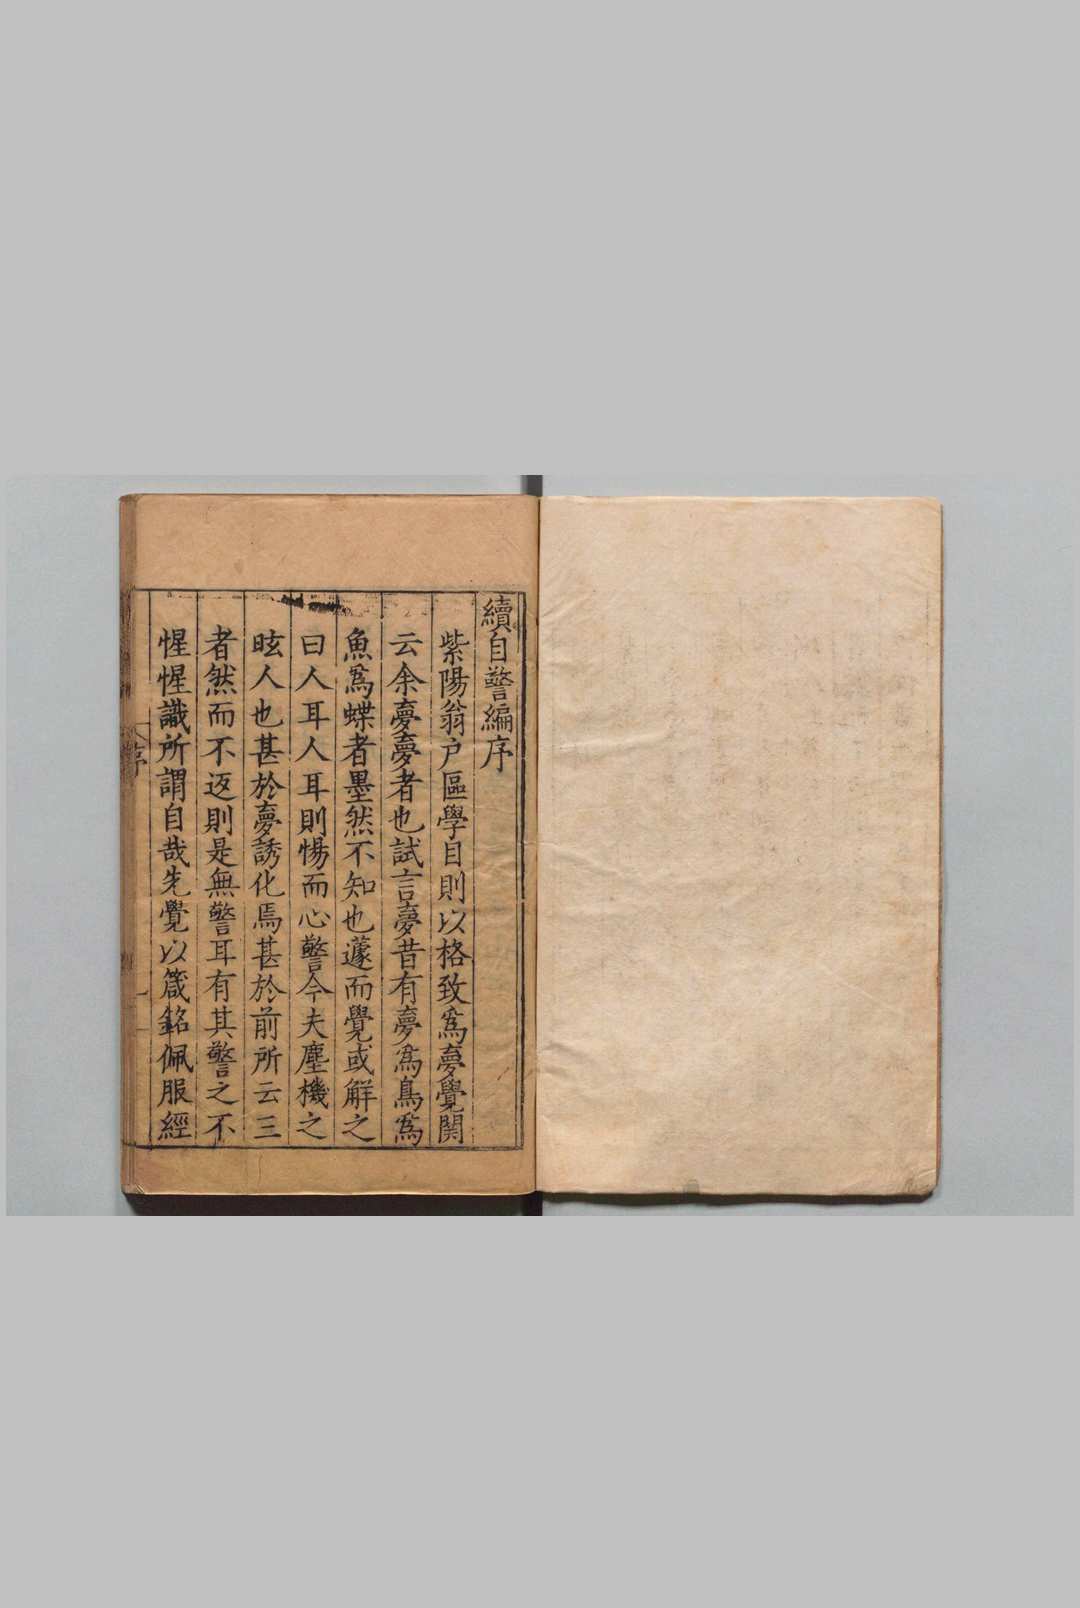 續自警編序
紫陽翁户區學目則以格致爲夢覺関
云余夢夢者也試言夢昔有夢爲鳥爲
魚爲蝶者墨然不知也蘧而覺或解之
曰人耳人耳則惕而心警今夫塵機之
眩人也甚於夢誘化焉甚於前所云三
者然而不返則是無警耳有其警之不
惺惺識所謂自哉先覺以箴銘佩服經
序